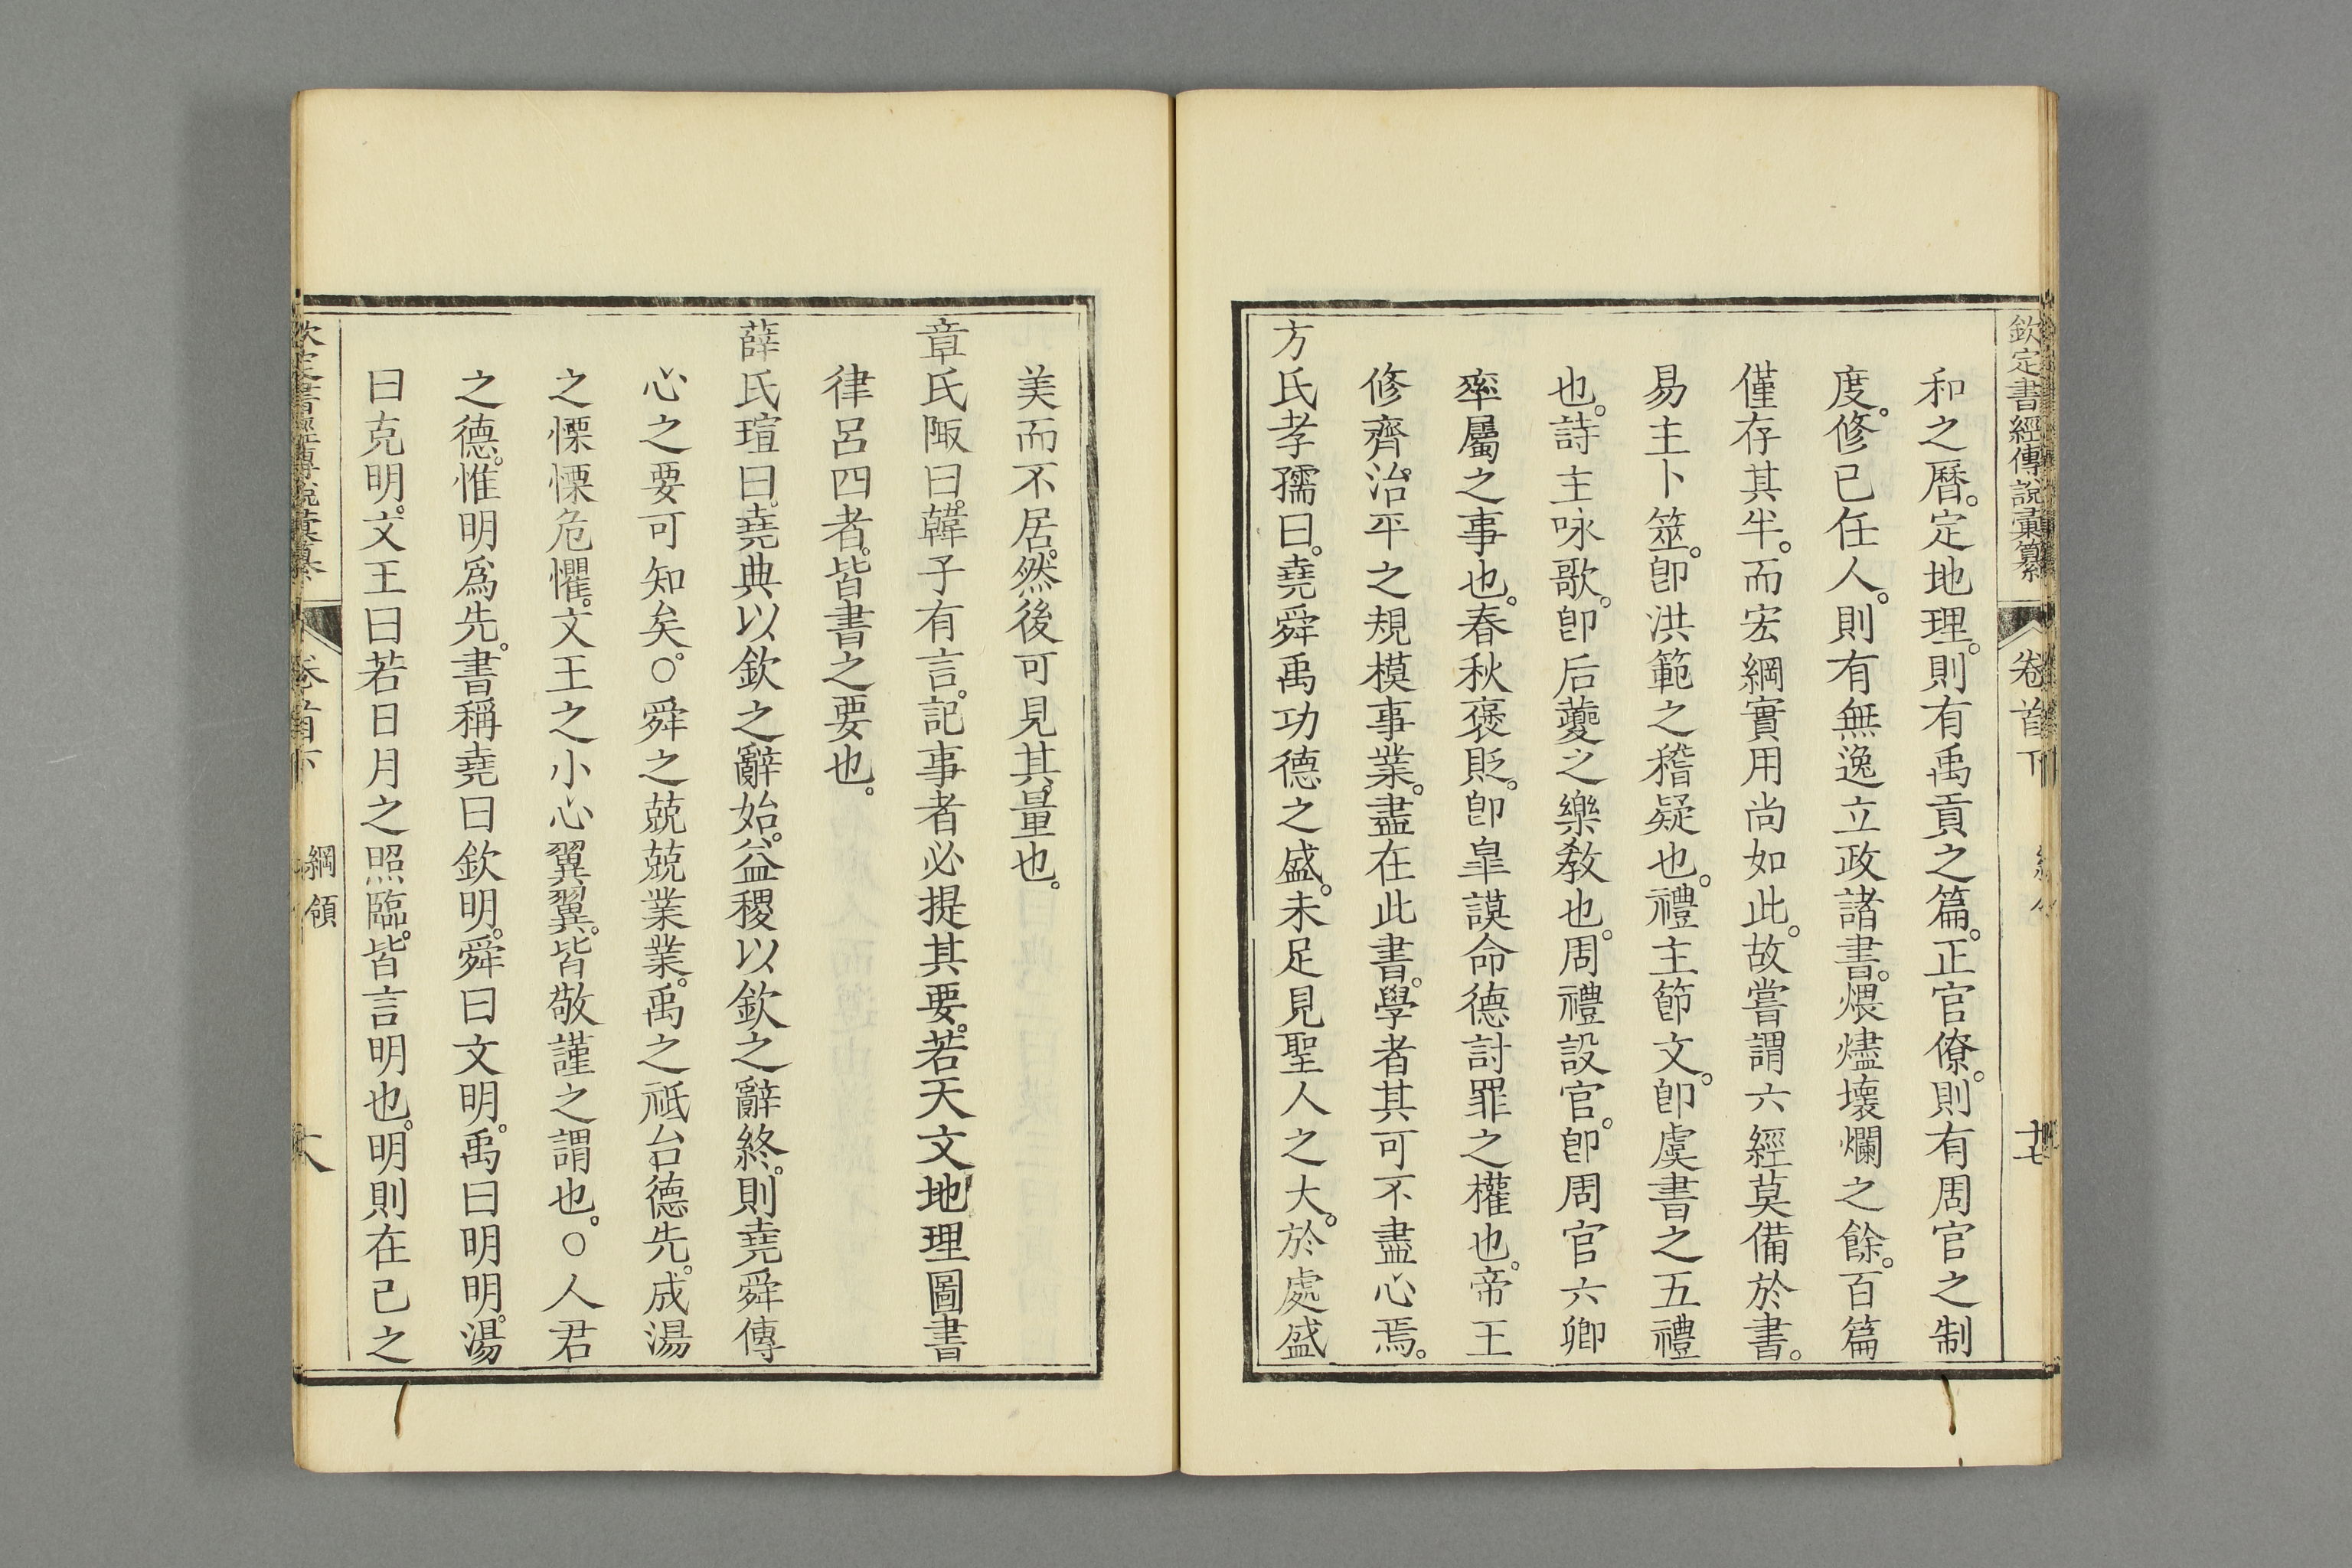 欽定書經傳說彙纂 卷首下 十七
和之曆。定地理。則有禹貢之篇。正官僚。則有周官之制
度。修已任人。則有無逸立政諸書。煨燼壞爛之餘。百篇
僅存其半。而宏綱實用尚如此。故嘗謂六經莫備於書。
易主卜筮。卽洪範之稽疑也。禮主節文。卽虞書之五禮
也。詩主咏歌。卽后夔之樂敎也。周禮設官。卽周官六卿
率屬之事也。春秋褒貶。卽皐謨命德討罪之權也。帝王
修齊治平之規模事業。盡在此書。學者其可不盡心焉。
方氏孝孺曰。堯舜禹功德之盛。未足見聖人之大。於處盛
美而不居。然後可見其量也。
章氏陬曰。韓子有言。記事者必提其要。若天文地理圖書
律呂四者。皆書之要也。
薛氏瑄曰。堯典以欽之辭始。益稷以欽之辭終。則堯舜傳
心之要可知矣。○舜之兢兢業業。禹之祗台德先。成湯
之慄慄危懼。文王之小心翼翼。皆敬謹之謂也。○人君
之德。惟明爲先。書稱堯曰欽明。舜曰文明。禹曰明明。湯
曰克明。文王曰若日月之照臨。皆言明也。明則在已之
欽定書經傳說彙纂 卷首下 綱領